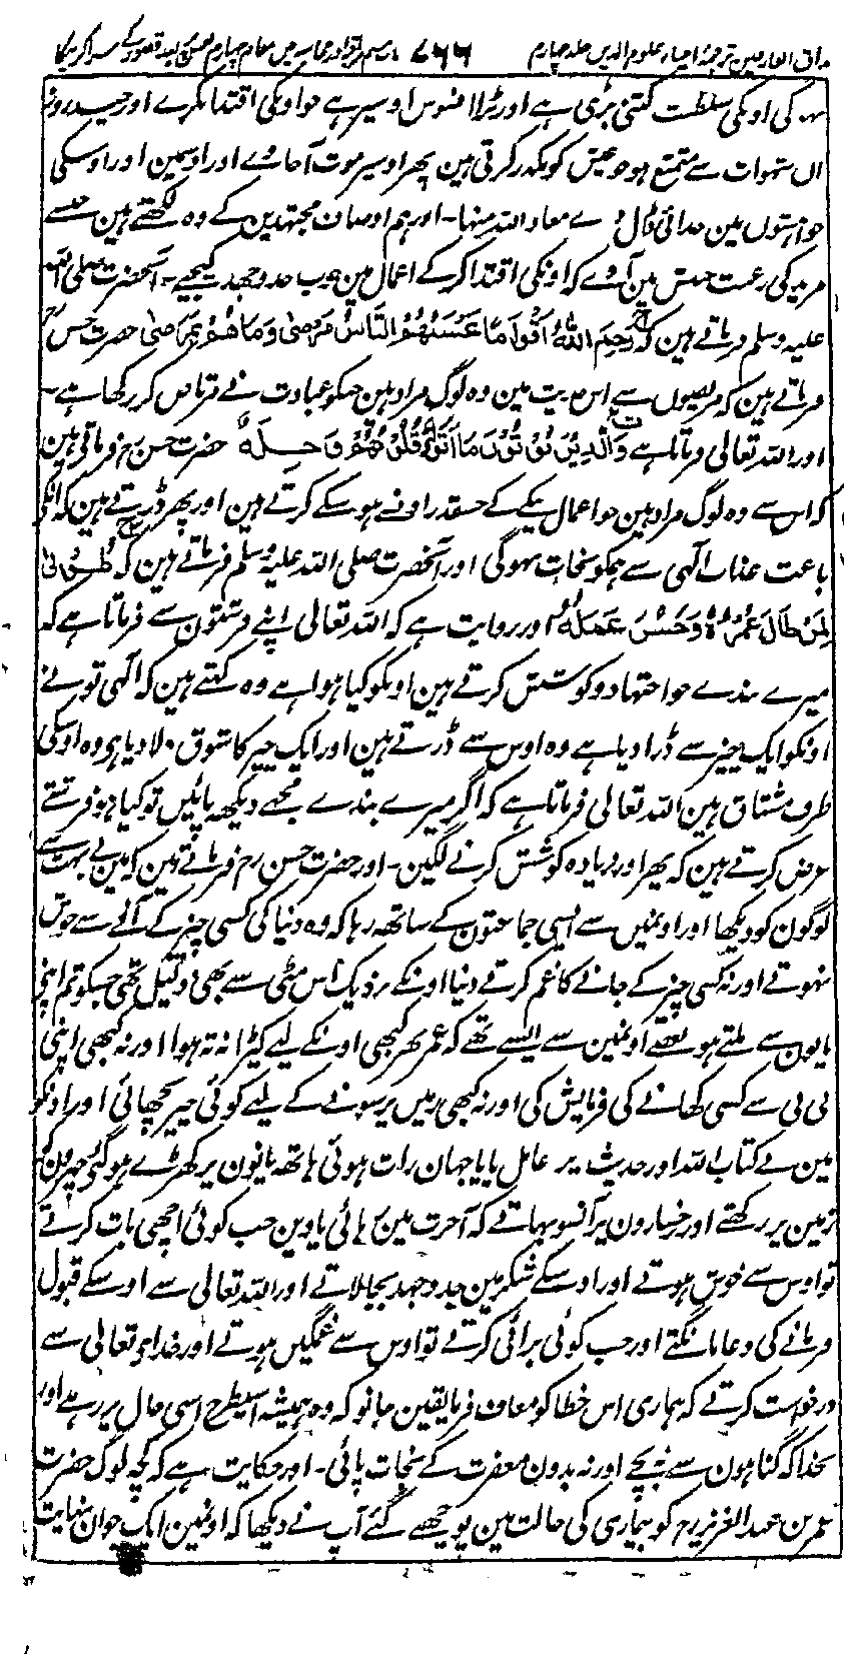 مذاق العارفین ترجمہ احیاء علوم الدین جلد چہارم ۷۶۶
کی اونکی سلطنت کتنی بڑی ہے اور بڑا افسوس اوسپر ہے جو اونکی اقتدا نکرے اور چند روز
ان شہوات سے متمتع ہو جو عیش کو مکدر کرتی ہین پھر اوسپر موت آجاوے اور اوسمین اور اوسکی
خواہشوں مین جدائی ڈالے معاذ اللہ منہا۔ اور ہم اوصاف مجتہدین کے وہ لکھتے ہین جسسے
مرید کی رغبت جنبش مین آوے کہ اونکی اقتدا کرکے اعمال مین خوب جد و جہد کیجیے۔ آنحضرت صلی اللہ
علیہ وسلم فرماتے ہین کہ رَحِمَ اللّٰهُ اَقْوَامًا تَحْسَبُهُمُ النَّاسُ مَرْضٰی وَمَا هُمْ بِمَرْضٰی حضرت حسن رح
فرماتے ہین کہ مریضوں سے اس حدیث مین وہ لوگ مراد ہین جنکو عبادت نے کر رکھا ہے۔
اور اللہ تعالی فرماتا ہے وَالَّذِیْنَ یُؤْتُوْنَ مَا اٰتَوْا وَّقُلُوْبُهُمْ وَجِلَةٌ حضرت حسن رح فرماتے ہین
کہ اس سے وہ لوگ مراد ہین جو اعمال نیک کے جسقدر اونسے ہو سکے کرتے ہین اور پھر ڈرتے ہین کہ انکے
باعث عذاب الٰہی سے ہمکو نجات نہوگی اور آنحضرت صلی اللہ علیہ وسلم فرماتے ہین کہ طُوْبٰی
لِمَنْ طَالَ عُمْرُهٗ وَحَسُنَ عَمَلُهٗ اور روایت ہے کہ اللہ تعالی اپنے فرشتون سے فرماتا ہے کہ
میرے بندے جو اجتہاد و کوشش کرتے ہین اونکو کیا ہوا ہے وہ کہتے ہین کہ الٰہی تو نے
اونکو ایک چیز سے ڈرا دیا ہے وہ اوس سے ڈرتے ہین اور ایک چیز کا شوق دلا دیا ہی وہ اوسکی
طرف مشتاق ہین اللہ تعالی فرماتا ہے کہ اگر میرے بندے مجھے دیکھ پائیں تو کیا ہو فرشتے
عرض کرتے ہین کہ پھر اور زیادہ کوشش کرنے لگین۔ اور حضرت حسن رح فرماتے ہین کہ مین نے بہت سے
لوگون کو دیکھا اور اونمیں سے ایسی جماعتون کے ساتھ رہا کہ وہ دنیا کی کسی چیز کے آنے سے خوش
نہوتے اور نہ کسی چیز کے جانے کا غم کرتے دنیا اونکے نزدیک اس مٹی سے بھی ذلیل تھی جسکو تم اپنے
پانون سے ملتے ہو بعضے اونمین سے ایسے تھے کہ عمر بھر کبھی اونکے لیے کپڑا نہ تہ ہوا اور نہ کبھی اپنی
بی بی سے کسی کھانے کی فرمایش کی اور نہ کبھی زمیں پر سونے کے لیے کوئی چیز بچھائی اور اونکو
مین نے کتاب اللہ اور حدیث پر عامل پایا جہان رات ہوئی ہاتھ پانون پر کھڑے ہو گئے چہرون کو
زمین پر رکھتے اور رخسارون پر آنسو بہاتے کہ آخرت مین رہائی پاوین جب کوئی اچھی بات کرتے
تو اوس سے خوش ہوتے اور اوسکے شکر مین جد و جہد بجا لاتے اور اللہ تعالی سے اوسکے قبول
فرمانے کی دعا مانگتے اور جب کوئی برائی کرتے تو اوس سے غمگیں ہوتے اور خدای تعالی سے
درخواست کرتے کہ ہماری اس خطا کو معاف فرما یقین جانو کہ وہ ہمیشہ اسیطرح اسی حال پر رہے اور
بخدا کہ گناہون سے نہ بچے اور نہ بدون مغفرت کے نجات پائی۔ اور حکایت ہے کہ کچھ لوگ حضرت
عمر بن عبد العزیز رح کو بیماری کی حالت مین پوچھنے گئے آپ نے دیکھا کہ اونمین ایک جوان نہایت